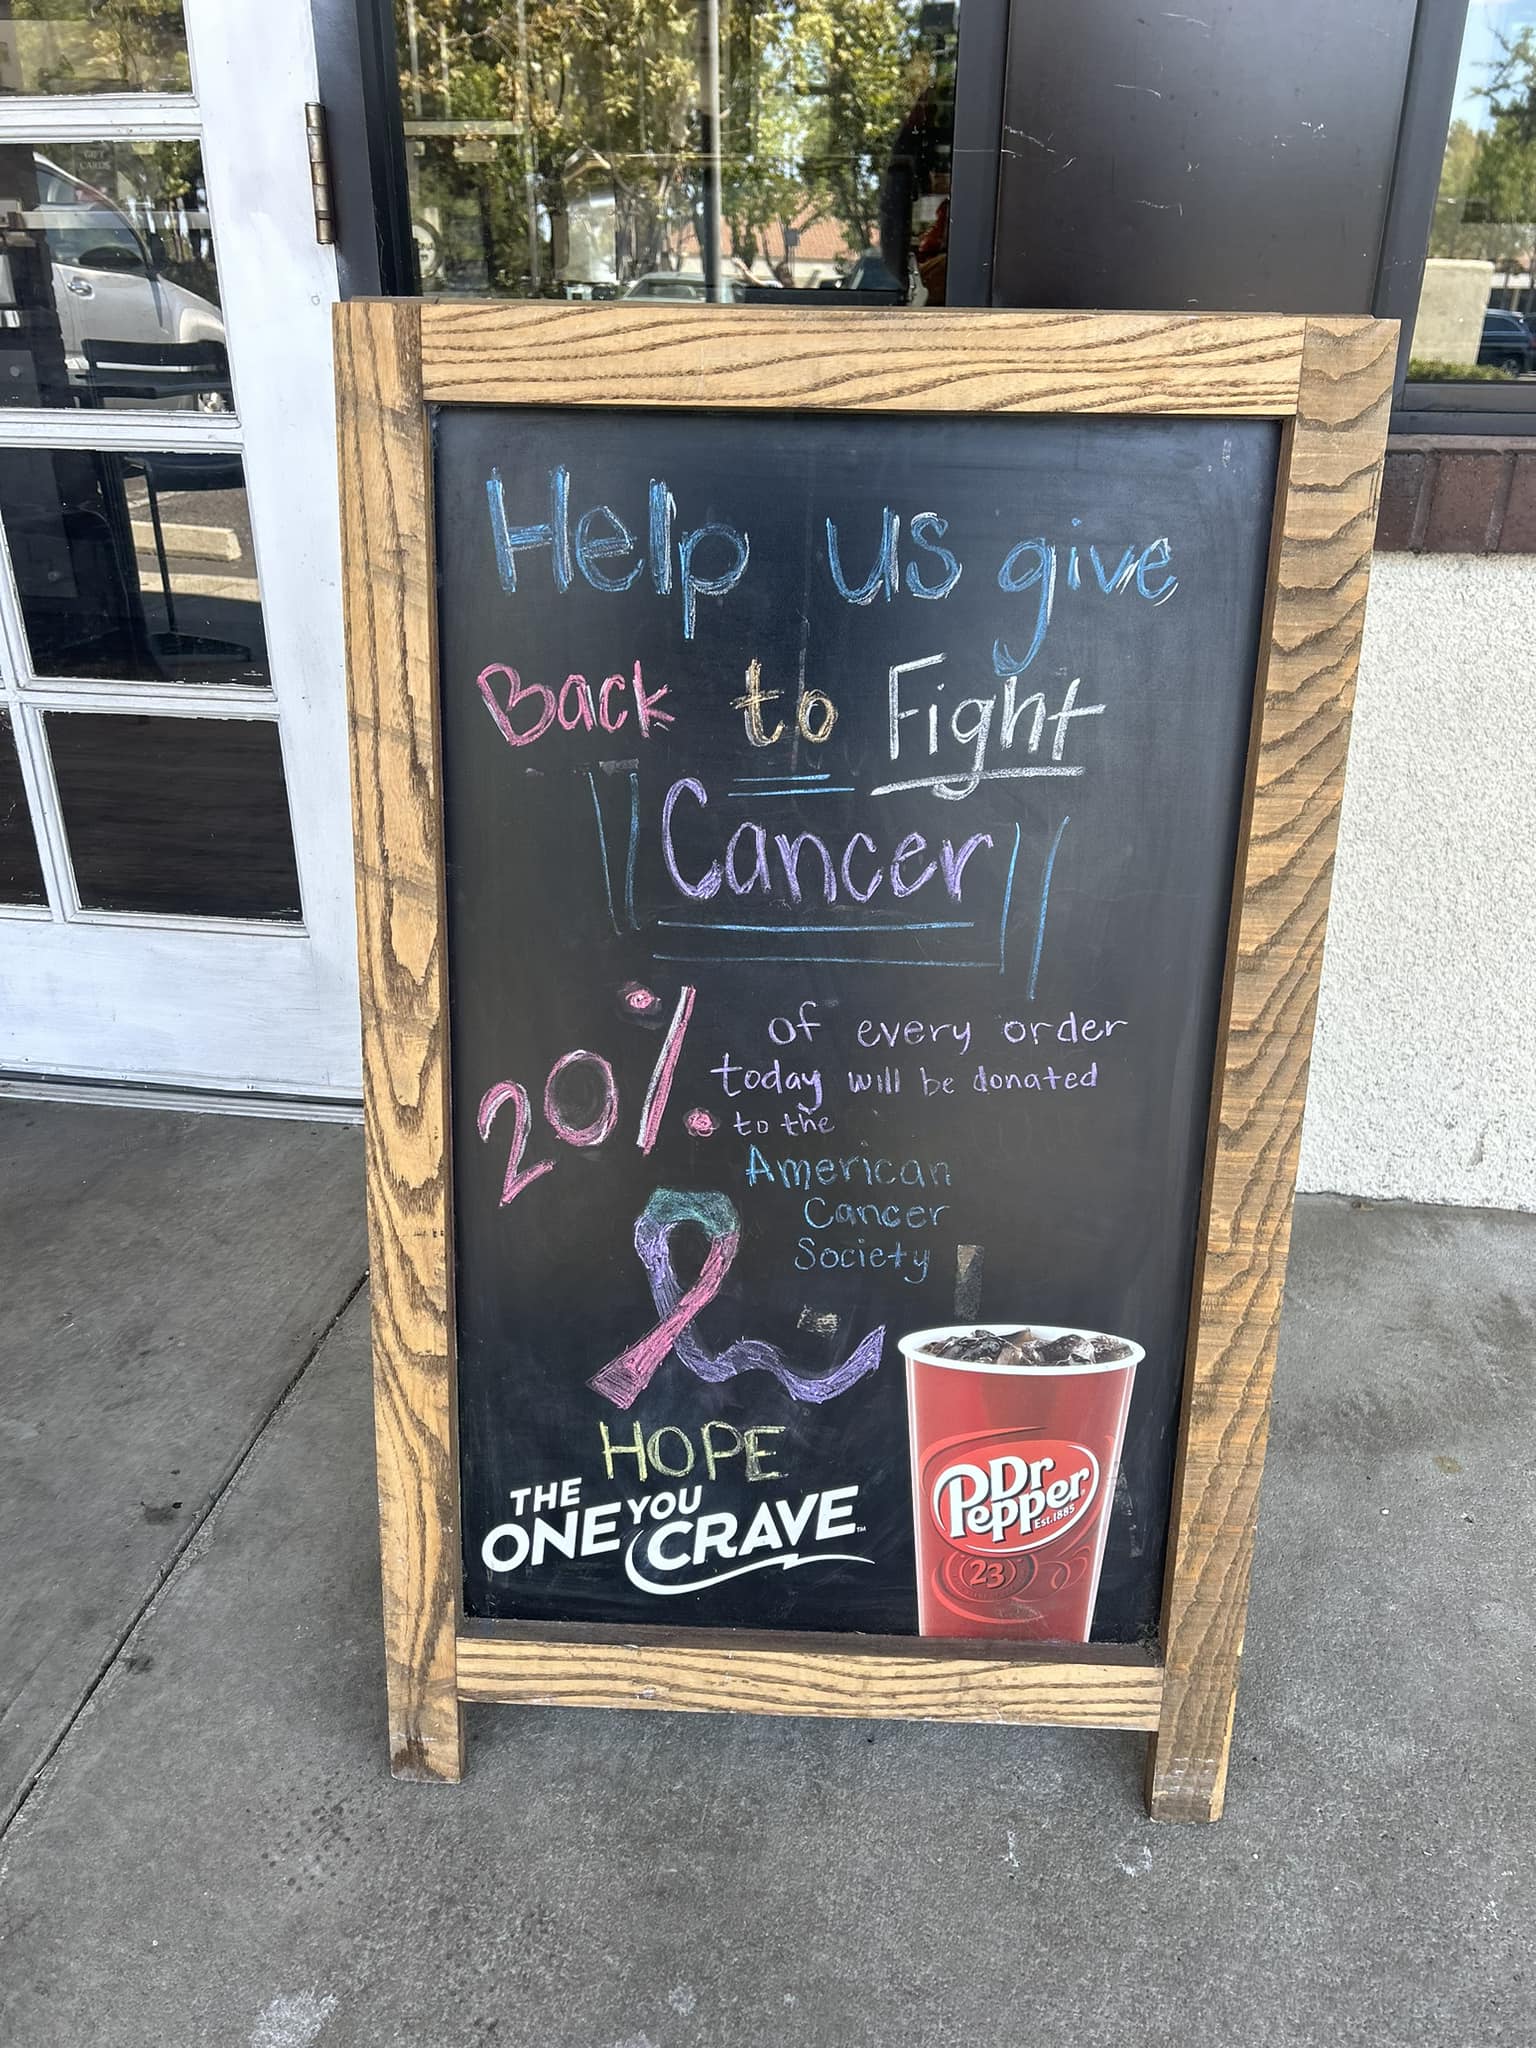 GIFT
CARDS
Help us give
Back to Fight
Cancer
20% of every order
today will be donated
to the
American
Cancer
Society
HOPE
THE
ONE YOU
CRAVE™
Dr
Pepper
Est.1885
23